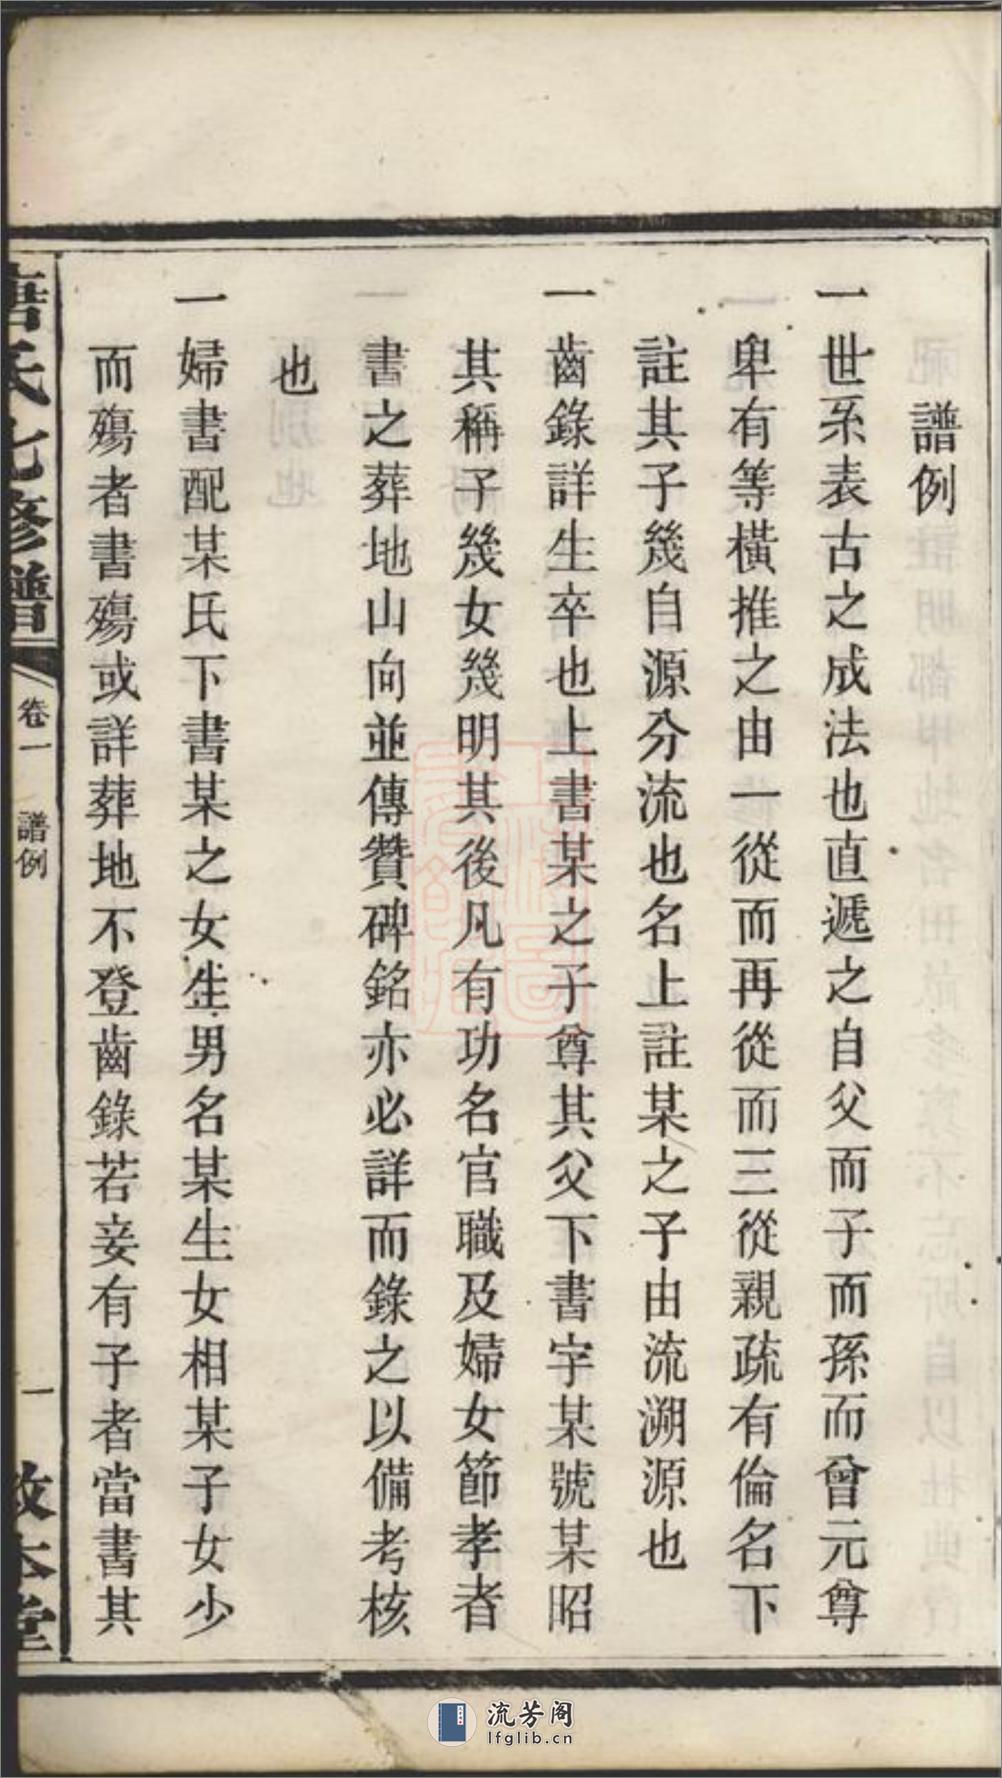 譜例
一世系表古之成法也直遞之自父而子而孫而曾元尊
卑有等橫推之由一從而再從而三從親疏有倫名下
註其子幾自源分流也名上註某之子由流溯源也
一齒錄詳生卒也上書某之子尊其父下書字某號某昭
其稱子幾女幾明其後凡有功名官職及婦女節孝者
書之葬地山向並傳贊碑銘亦必詳而錄之以備考核
也
一婦書配某氏下書某之女生男名某生女相某子女少
而殤者書殤或詳葬地不登齒錄若妾有子者當書其
氏七修譜
卷一
譜例
一
敦本堂
流芳阁
lfglib.cn